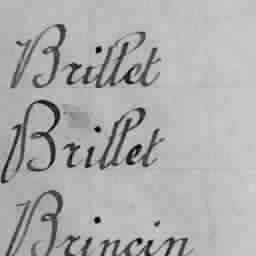 Brillet
Brillet
Brincin